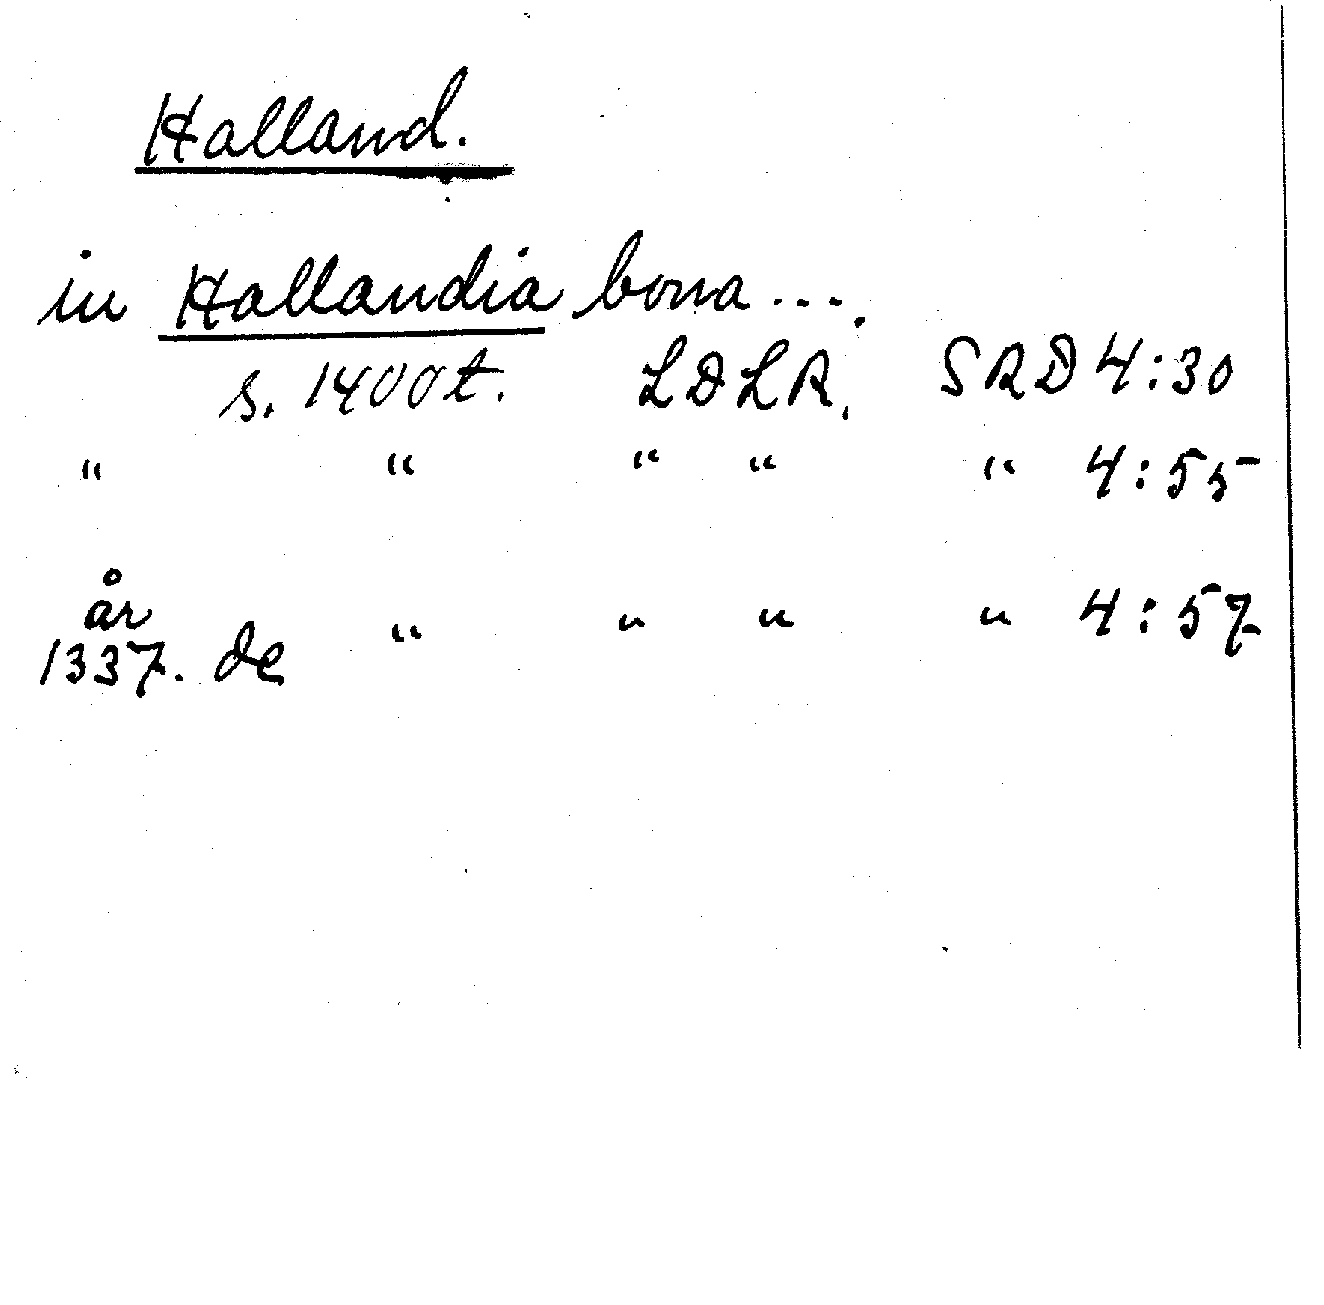 Halland.
in Hallandia bona ....
s. 1400 t. LDLR. SRD 4:30
" " " " " 4:55
år
1337. de " " " " 4:57